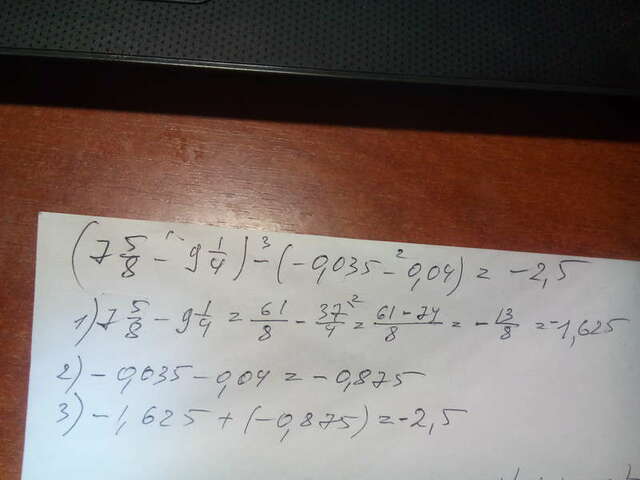 (7 5/8 - 9 1/4) - (-0,035 - 0,04) = -2,5
1) 7 5/8 - 9 1/4 = 61/8 - 37/4 = 61-74/8 = -13/8 = -1,625
2) -0,035 - 0,04 = -0,875
3) -1,625 + (-0,875) = -2,5